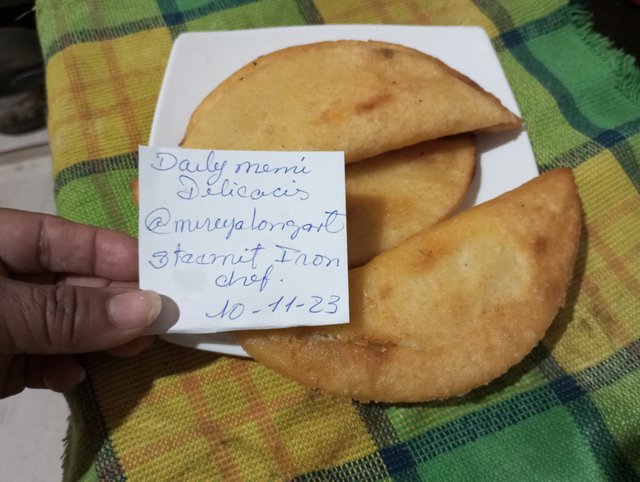 Daily memi
Delicacis
@mireyalongart
Steemit Iron
chef.
10-11-23